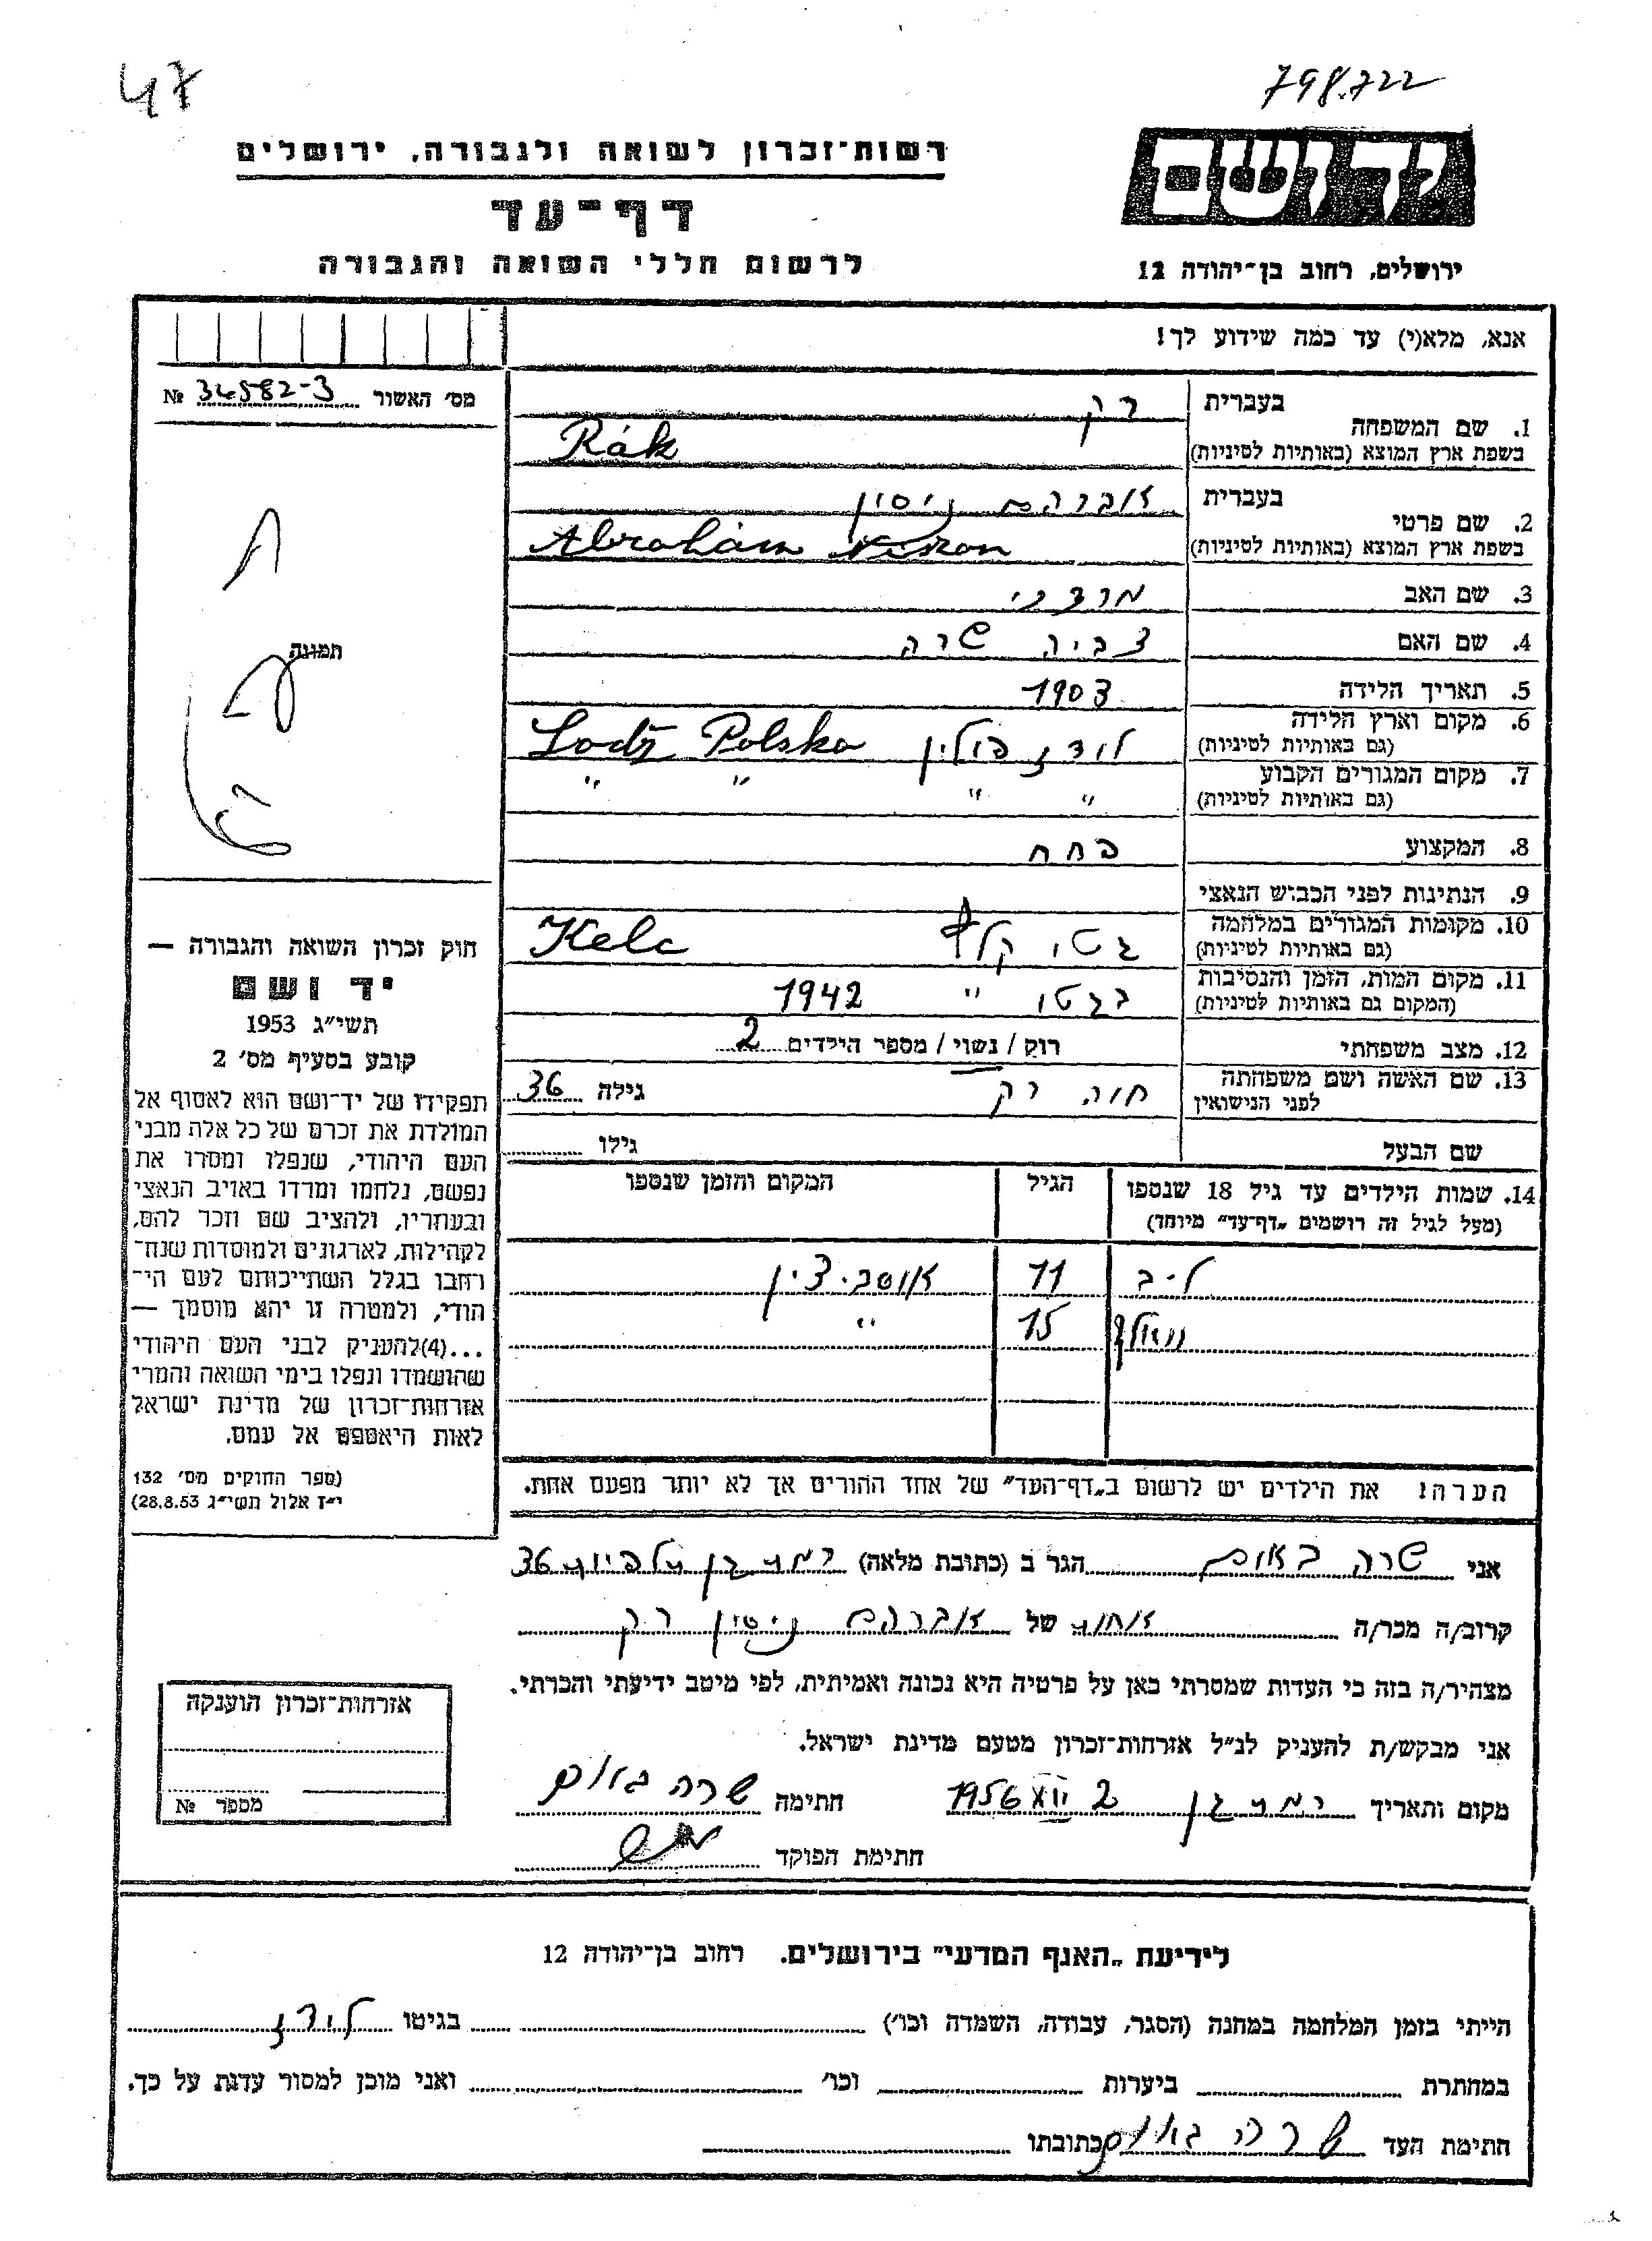 47
798.722
רשות־זכרון לשואה ולגבורה, ירושלים
דף־עד
לרשום חללי השואה והגבורה
יד ושם
ירושלים, רחוב בן־יהודה 12
אנא, מלא(י) עד כמה שידוע לך!
מס׳ האשור 34582-3 №
1. שם המשפחה בעברית רק
בשפת ארץ המוצא (באותיות לטיניות) Rák
2. שם פרטי בעברית אברהם ניסון
בשפת ארץ המוצא (באותיות לטיניות) Abrahám Nison
3. שם האב מרדכי
4. שם האם צביה שרה
5. תאריך הלידה 1903
6. מקום וארץ הלידה לודז פולין Lodż Polska
(גם באותיות לטיניות)
7. מקום המגורים הקבוע " " " "
(גם באותיות לטיניות)
8. המקצוע פחח
9. הנתינות לפני הכבוש הנאצי
10. מקומות המגורים במלחמה גטו Kelc
(גם באותיות לטיניות)
11. מקום המות, הזמן והנסיבות בגטו " 1942
(המקום גם באותיות לטיניות)
12. מצב משפחתי רוק / נשוי / מספר הילדים 2
13. שם האשה ושם משפחתה חוה רק גילה 36
לפני הנישואין
שם הבעל גילו
14. שמות הילדים עד גיל 18 שנספו הגיל המקום והזמן שנספו
(מעל לגיל זה רושמים „דף־עד״ מיוחד)
ליב 11 אושביצין
15 "
הערה! את הילדים יש לרשום ב„דף־העד״ של אחד ההורים אך לא יותר מפעם אחת.
תמונה
חוק זכרון השואה והגבורה —
יד ושם
תשי״ג 1953
קובע בסעיף מס׳ 2
תפקידו של יד־ושם הוא לאסוף אל
המולדת את זכרם של כל אלה מבני
העם היהודי, שנפלו ומסרו את
נפשם, נלחמו ומרדו באויב הנאצי
ובעוזריו, ולהציב שם וזכר להם,
לקהילות, לארגונים ולמוסדות שנח־
רבו בגלל השתייכותם לעם הי־
הודי, ולמטרה זו יהא מוסמך —
...(4)להעניק לבני העם היהודי
שהושמדו ונפלו בימי השואה והמרי
אזרחות־זכרון של מדינת ישראל
לאות היאספם אל עמם.
(ספר החוקים מס׳ 132
י״ז אלול תשי״ג 28.8.53)
אני שרה באום הגר ב (כתובת מלאה) רמת גן 36
קרוב/ה מכר/ה אחות של אברהם ניסון רק
מצהיר/ה בזה כי העדות שמסרתי כאן על פרטיה היא נכונה ואמיתית, לפי מיטב ידיעתי והכרתי.
אני מבקש/ת להעניק לנ״ל אזרחות־זכרון מטעם מדינת ישראל.
מקום ותאריך רמת גן 2 XII 1956 חתימה שרה באום
חתימת הפוקד
אזרחות־זכרון הוענקה
מספר №
לידיעת „האנף המדעי״ בירושלים. רחוב בן־יהודה 12
הייתי בזמן המלחמה במחנה (הסגר, עבודה, השמדה וכו׳) בגיטו לודז
במחתרת ביערות וכו׳ ואני מוכן למסור עדות על כך.
חתימת העד שרה באום כתובתו